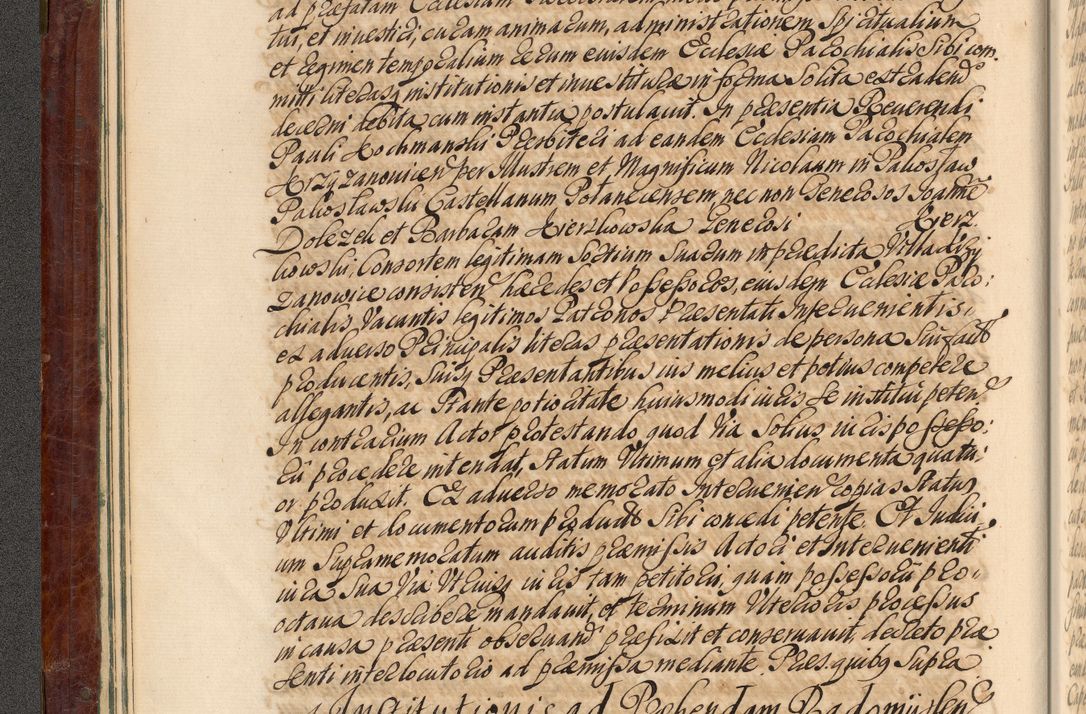 ad præfatam Ecclesiam
tui, et investiri, curam animarum, administrationem Spiritualium
et regimen temporalium rerum eiusdem Ecclesiæ Parochialis Sibi com
mitti literasq institutionis et investituræ in forma Solita extradend
decerni debita cum instantia postulavit. In præsentia Reverendi
Pauli Kochmanski Præsbiteri ad eandem Ecclesiam Parochialem
per Illustrem et Magnificum Nicolaum in Paliosław
Paliosławski Castellanum Polanecensem, nec non Generosos Joanne
Dolezek et Barbaram Kierzkowska Generosi Kierz
kowski, Consortem legitimam Sortium Suarum in prædicta Villa
zanowice consisten hæredes et Possessores, eiusdem Ecclesiæ Paro:
chialis Vacantis legitimos Patronos Præsentati Intervenientis,
ex adverso Principalis literas præsentationis de persona Sui fact
producentis, Suisq Præsentantibus ius melius et potius competere
allegantis, ac Stante potioritate huiusmodi iuris Se institui peten
In contrarium Actor protestando quod Via Solius iuris possesso:
rii procedere intendat, Statum Ultimum et alia documenta quatu:
or produxit. Ex adverso memorato Intervenien copias Status
Ultimi et documentorum product Sibi concedi petente. Et Judici:
um Supramemoratum auditis præmissis Actori et Intervenienti
iuxta Sua Via Utriusq iuris tam petitorii, quam possessorii pro
octava describere mandavit, et terminum Ulterioris processus
in causa præsenti observand præfixit et conservavit, decreto præ
senti interlocutorio ad præmissa mediante. Præs. quibq Supra
Institutionis ad Præbendam Radomÿslen